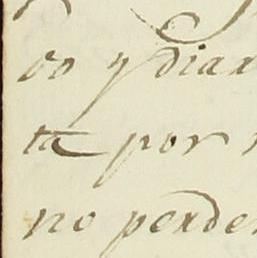 oo y diax
ta por
no perder